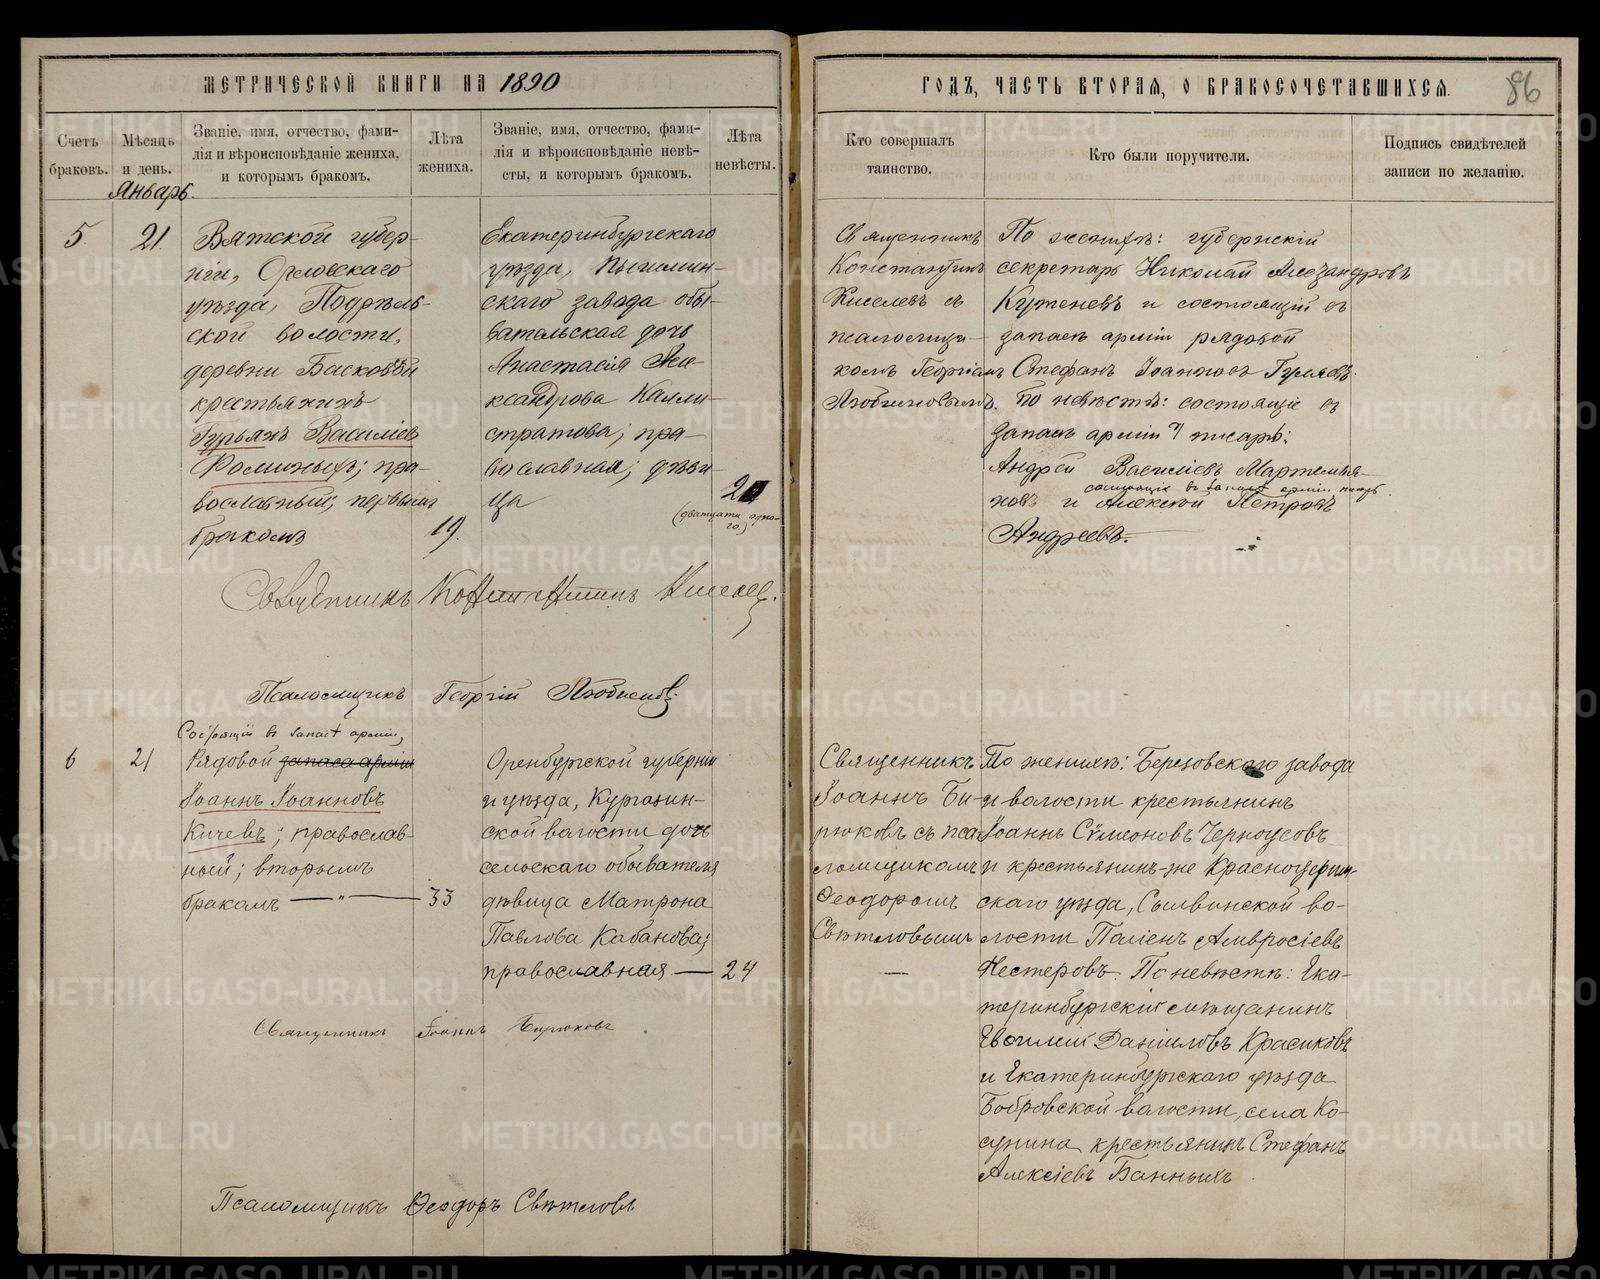 МЕТРИЧЕСКОЙ КНИГИ НА 1890
ГОДЪ, ЧАСТЬ ВТОРАЯ, О БРАКОСОЧЕТАВШИХСЯ.
86
Счетъ
браковъ.
Мѣсяцъ
и день.
Званіе, имя, отчество, фами-
лія и вѣроисповѣданіе жениха,
и которымъ бракомъ.
Лѣта
жениха.
Званіе, имя, отчество, фами-
лія и вѣроисповѣданіе невѣ-
сты, и которымъ бракомъ.
Лѣта
невѣсты.
Кто совершалъ
таинство.
Кто были поручители.
Подпись свидѣтелей
записи по желанію.
Январь.
5
21
Вятской губер-
ніи, Орловскаго
уѣзда, Подрѣль-
ской волости,
деревни
крестьянинъ
Гурьянъ Василіевъ
православный, первымъ
бракомъ
19.
Екатеринбургскаго
уѣзда, Пышмин-
скаго завода обы-
вательская дочь
Анастасія Але-
ксандрова Калли-
стратова; пра-
вославная; дѣви-
ца
(двадцати одно-
го)
Священникъ
Константинъ
Киселевъ съ
псаломщи-
комъ Георгіемъ
Любимовымъ.
По женихѣ: губернскій
секретарь Николай Александровъ
и состоящій въ
запасѣ арміи рядовой
Стефанъ Іоанновъ Гуляевъ.
По невѣстѣ: состоящіе въ
запасѣ арміи писарь:
Андрей Василіевъ Мартемья-
состоящій въ запасѣ арміи писарь
новъ и Алексій Петровъ
Андреевъ.
Священникъ Константинъ Киселевъ.
Псаломщикъ Георгій Любимовъ.
Состоящій въ запасѣ арміи,
6
21
Рядовой запаса арміи
Іоаннъ Іоанновъ
Кичевъ; православ-
ный; вторымъ
бракомъ — " — 33
Оренбургской губерніи
и уѣзда, Кургазин-
ской волости дочь
сельскаго обывателя
дѣвица Матрона
Павлова Кабанова;
православная — 24
Священникъ
Іоаннъ Би-
рюковъ съ пса-
ломщикомъ
Ѳеодоромъ
Свѣтловымъ
—
По женихѣ: Березовскаго завода
и волости крестьянинъ
Іоаннъ Сѵмеоновъ Черноусовъ
и крестьянинъ-же Красноуфим-
скаго уѣзда, Сылвинской во-
лости Амвросіевъ
Нестеровъ. По невѣстѣ: Ека-
теринбургскій мѣщанинъ
Даніиловъ Красиковъ
и Екатеринбургскаго уѣзда
Бобровской волости, села Ко-
сулина крестьянинъ Стефанъ
Алексіевъ Банныхъ
Священникъ Іоаннъ Бирюковъ.
Псаломщикъ Ѳеодоръ Свѣтловъ
METRIKI.GASO-URAL.RU